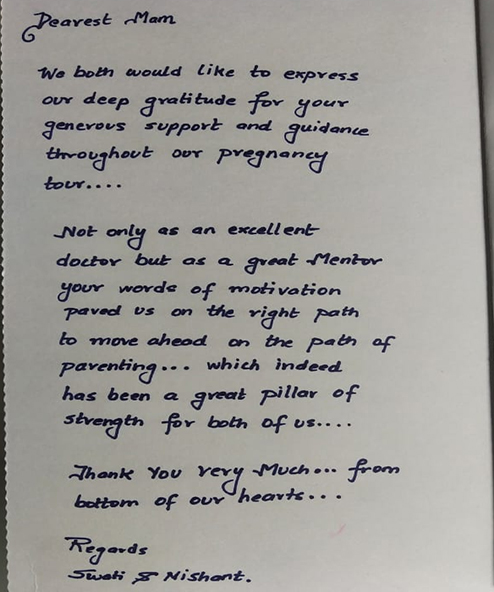 Dearest Mam
We both would like to express
our deep gratitude for your
generous support and guidance
throughout our pregnancy
tour....
Not only as an excellent
doctor but as a great Mentor
your words of motivation
paved us on the right path
to move ahead on the path of
parenting... which indeed
has been a great pillar of
strength for both of us....
Thank You very Much... from
bottom of our hearts...
Regards
Swati & Nishant.